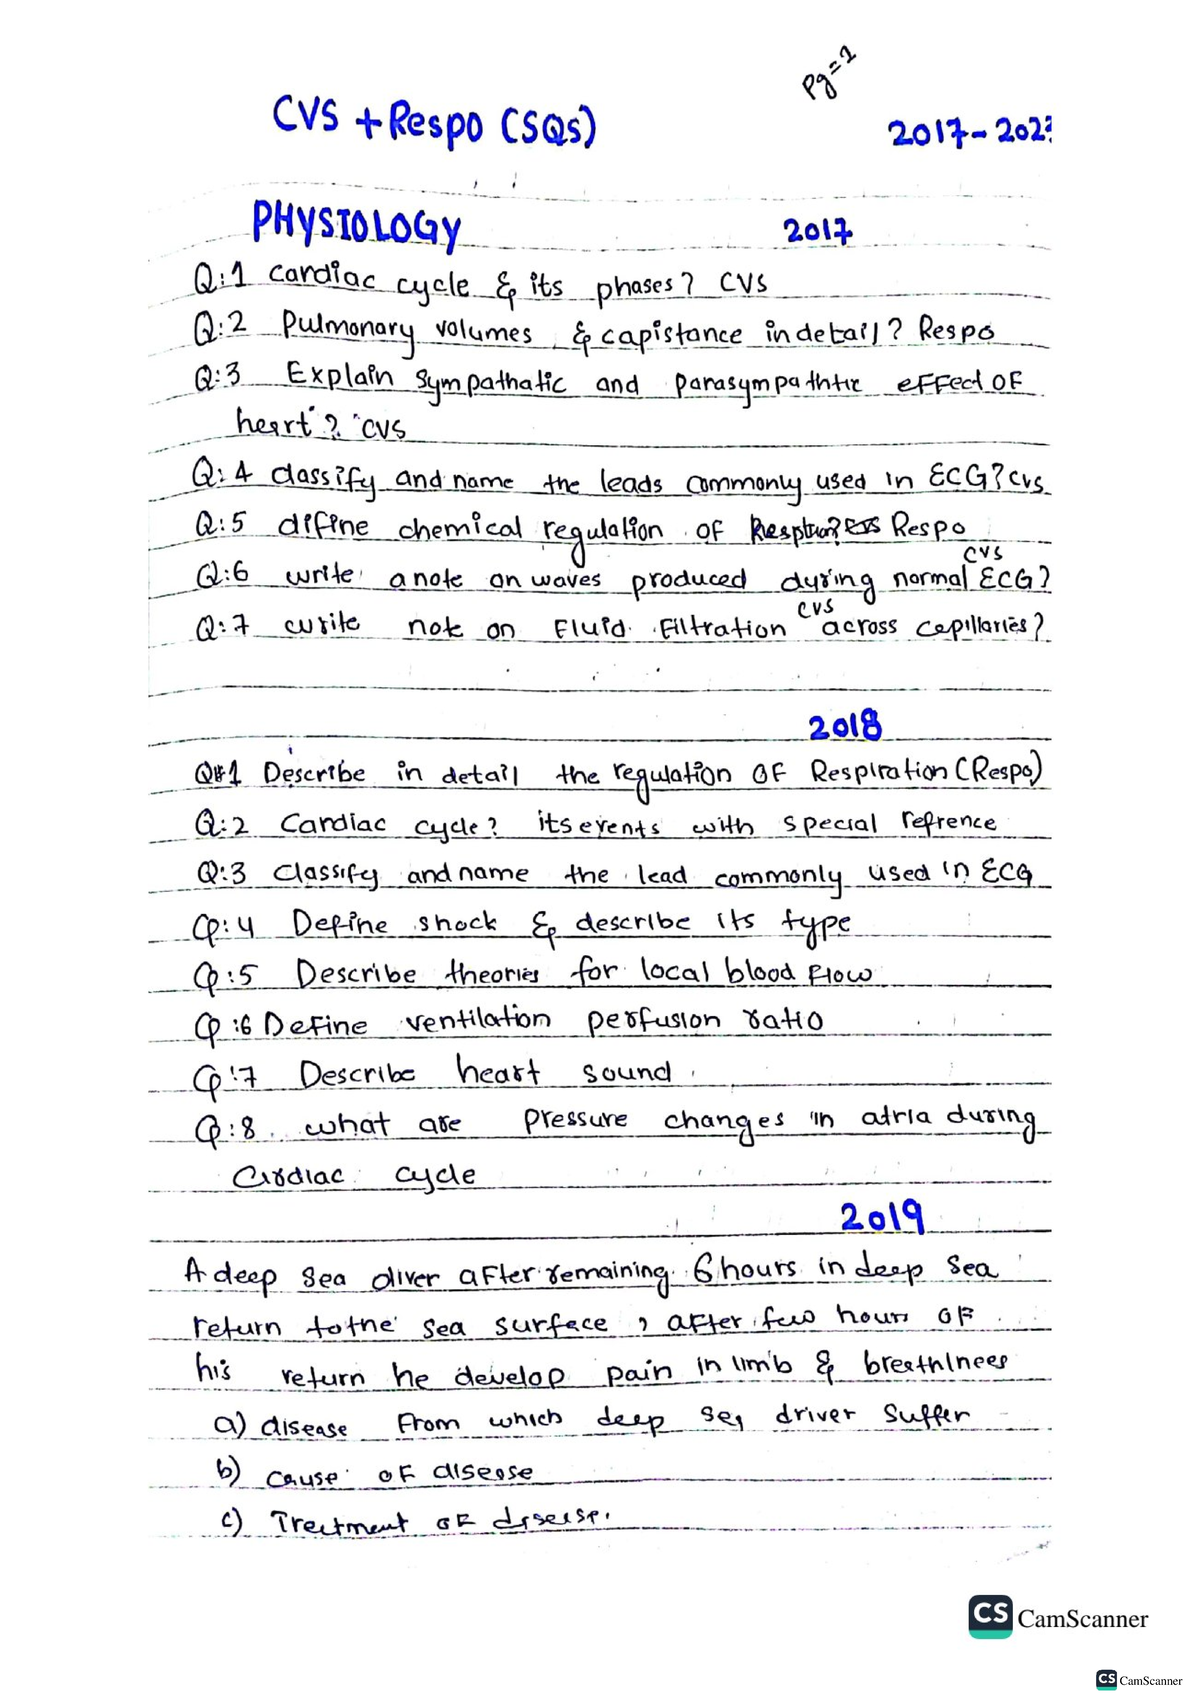 Pg=1
CVS + Respo (SQS)
2017-202
PHYSIOLOGY 2017
Q:1 cardiac cycle & its phases? CVS
Q:2 Pulmonary volumes & capistance in detail? Respo
Q:3 Explain sympathatic and parasympathtic effect OF
heart? CVS
Q:4 classify and name the leads commonly used in ECG? CVS
Q:5 difine chemical regulation of Respo
CVS
Q:6 write a note on waves produced during normal ECG?
CVS
Q:7 write note on Fluid Filtration across capillaries?
2018
Q#1 Describe in detail the regulation OF Respiration (Respo)
Q:2 Cardiac cycle? its events with special refrence
Q:3 classify and name the lead commonly used in ECG
Q:4 Define shock & describe its type
Q:5 Describe theories for local blood flow
Q:6 Define ventilation perfusion ratio
Q:7 Describe heart sound.
Q:8 what are pressure changes in atria during
Cardiac cycle
2019
A deep sea diver after remaining 6 hours in deep sea
return to the sea surface, after few hours OF
his return he develop pain in limb & breathlnees
a) disease From which deep sea driver suffer
b) cause OF disease
c) Treetment OF disease.
CS CamScanner
CS CamScanner